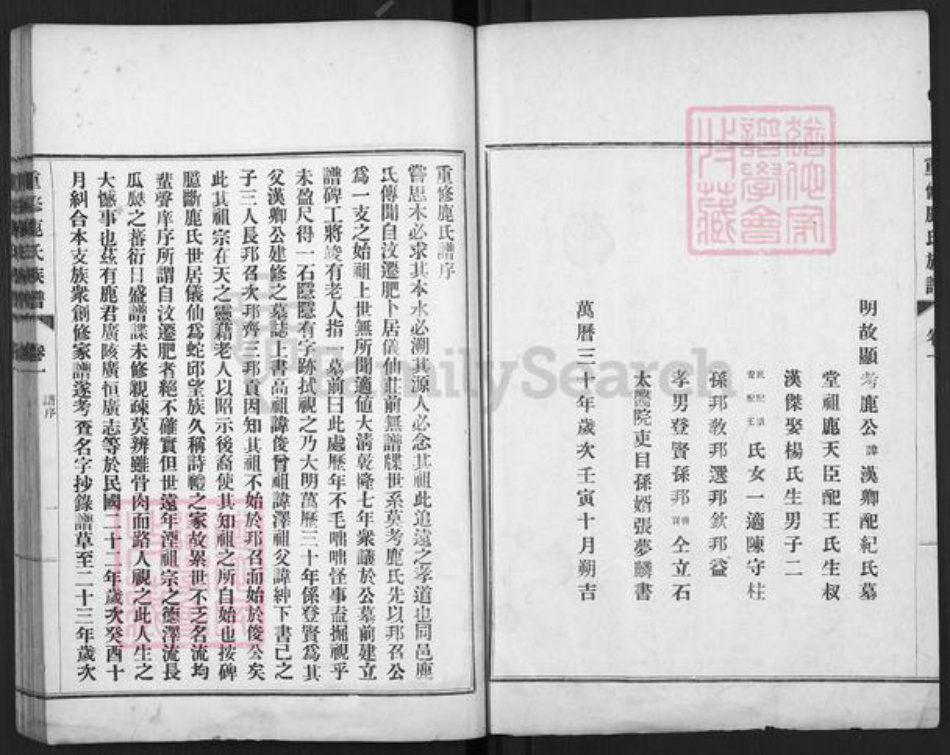 重修鹿氏族譜 卷一
明故顯考鹿公諱漢卿配紀氏墓
堂祖鹿天臣配王氏生叔
漢傑娶楊氏生男子二
氏女一適陳守柱
孫邦敎邦選邦欽邦益
孝男登賢孫邦 仝立石
太醫院吏目孫婿張夢麟書
萬曆三十年歲次壬寅十月朔吉
重修鹿氏譜序
嘗思木必求其本水必溯其源人必念其祖此追遠之孝道也同邑鹿
氏傳聞自汶遷肥卜居儀仙莊前無譜牒世系莫考鹿氏先以邦召公
爲一支之始祖上世無所聞適値大淸乾隆七年衆議於公墓前建立
譜碑工將竣有老人指一墓前曰此處歷年不毛咄咄怪事盍掘視乎
未盈尺得一石隱隱有字跡拭視之乃大明萬歷三十年係登賢爲其
父漢卿公建修之墓誌上書高祖諱俊曾祖諱澤祖父諱紳下書己之
子三人長邦召次邦齊三邦貢因知其祖不始於邦召而始於俊公矣
此其祖宗在天之靈藉老人以昭示後裔使其知祖之所自始也按碑
臆斷鹿氏世居儀仙爲蛇邱望族久稱詩禮之家故累世不乏名流均
蜚聲庠序所謂自汶遷肥者絕不確實但世遠年湮祖宗之德澤流長
瓜瓞之蕃衍日盛譜諜未修親疎莫辨雖骨肉而路人視之此人生之
大憾事也茲有鹿君廣陔廣恒廣志等於民國二十二年歲次癸酉十
月糾合本支族衆創修家譜遂考查名字抄錄譜草至二十三年歲次
重修鹿氏族譜 卷一
譜序
一
FamilySearch